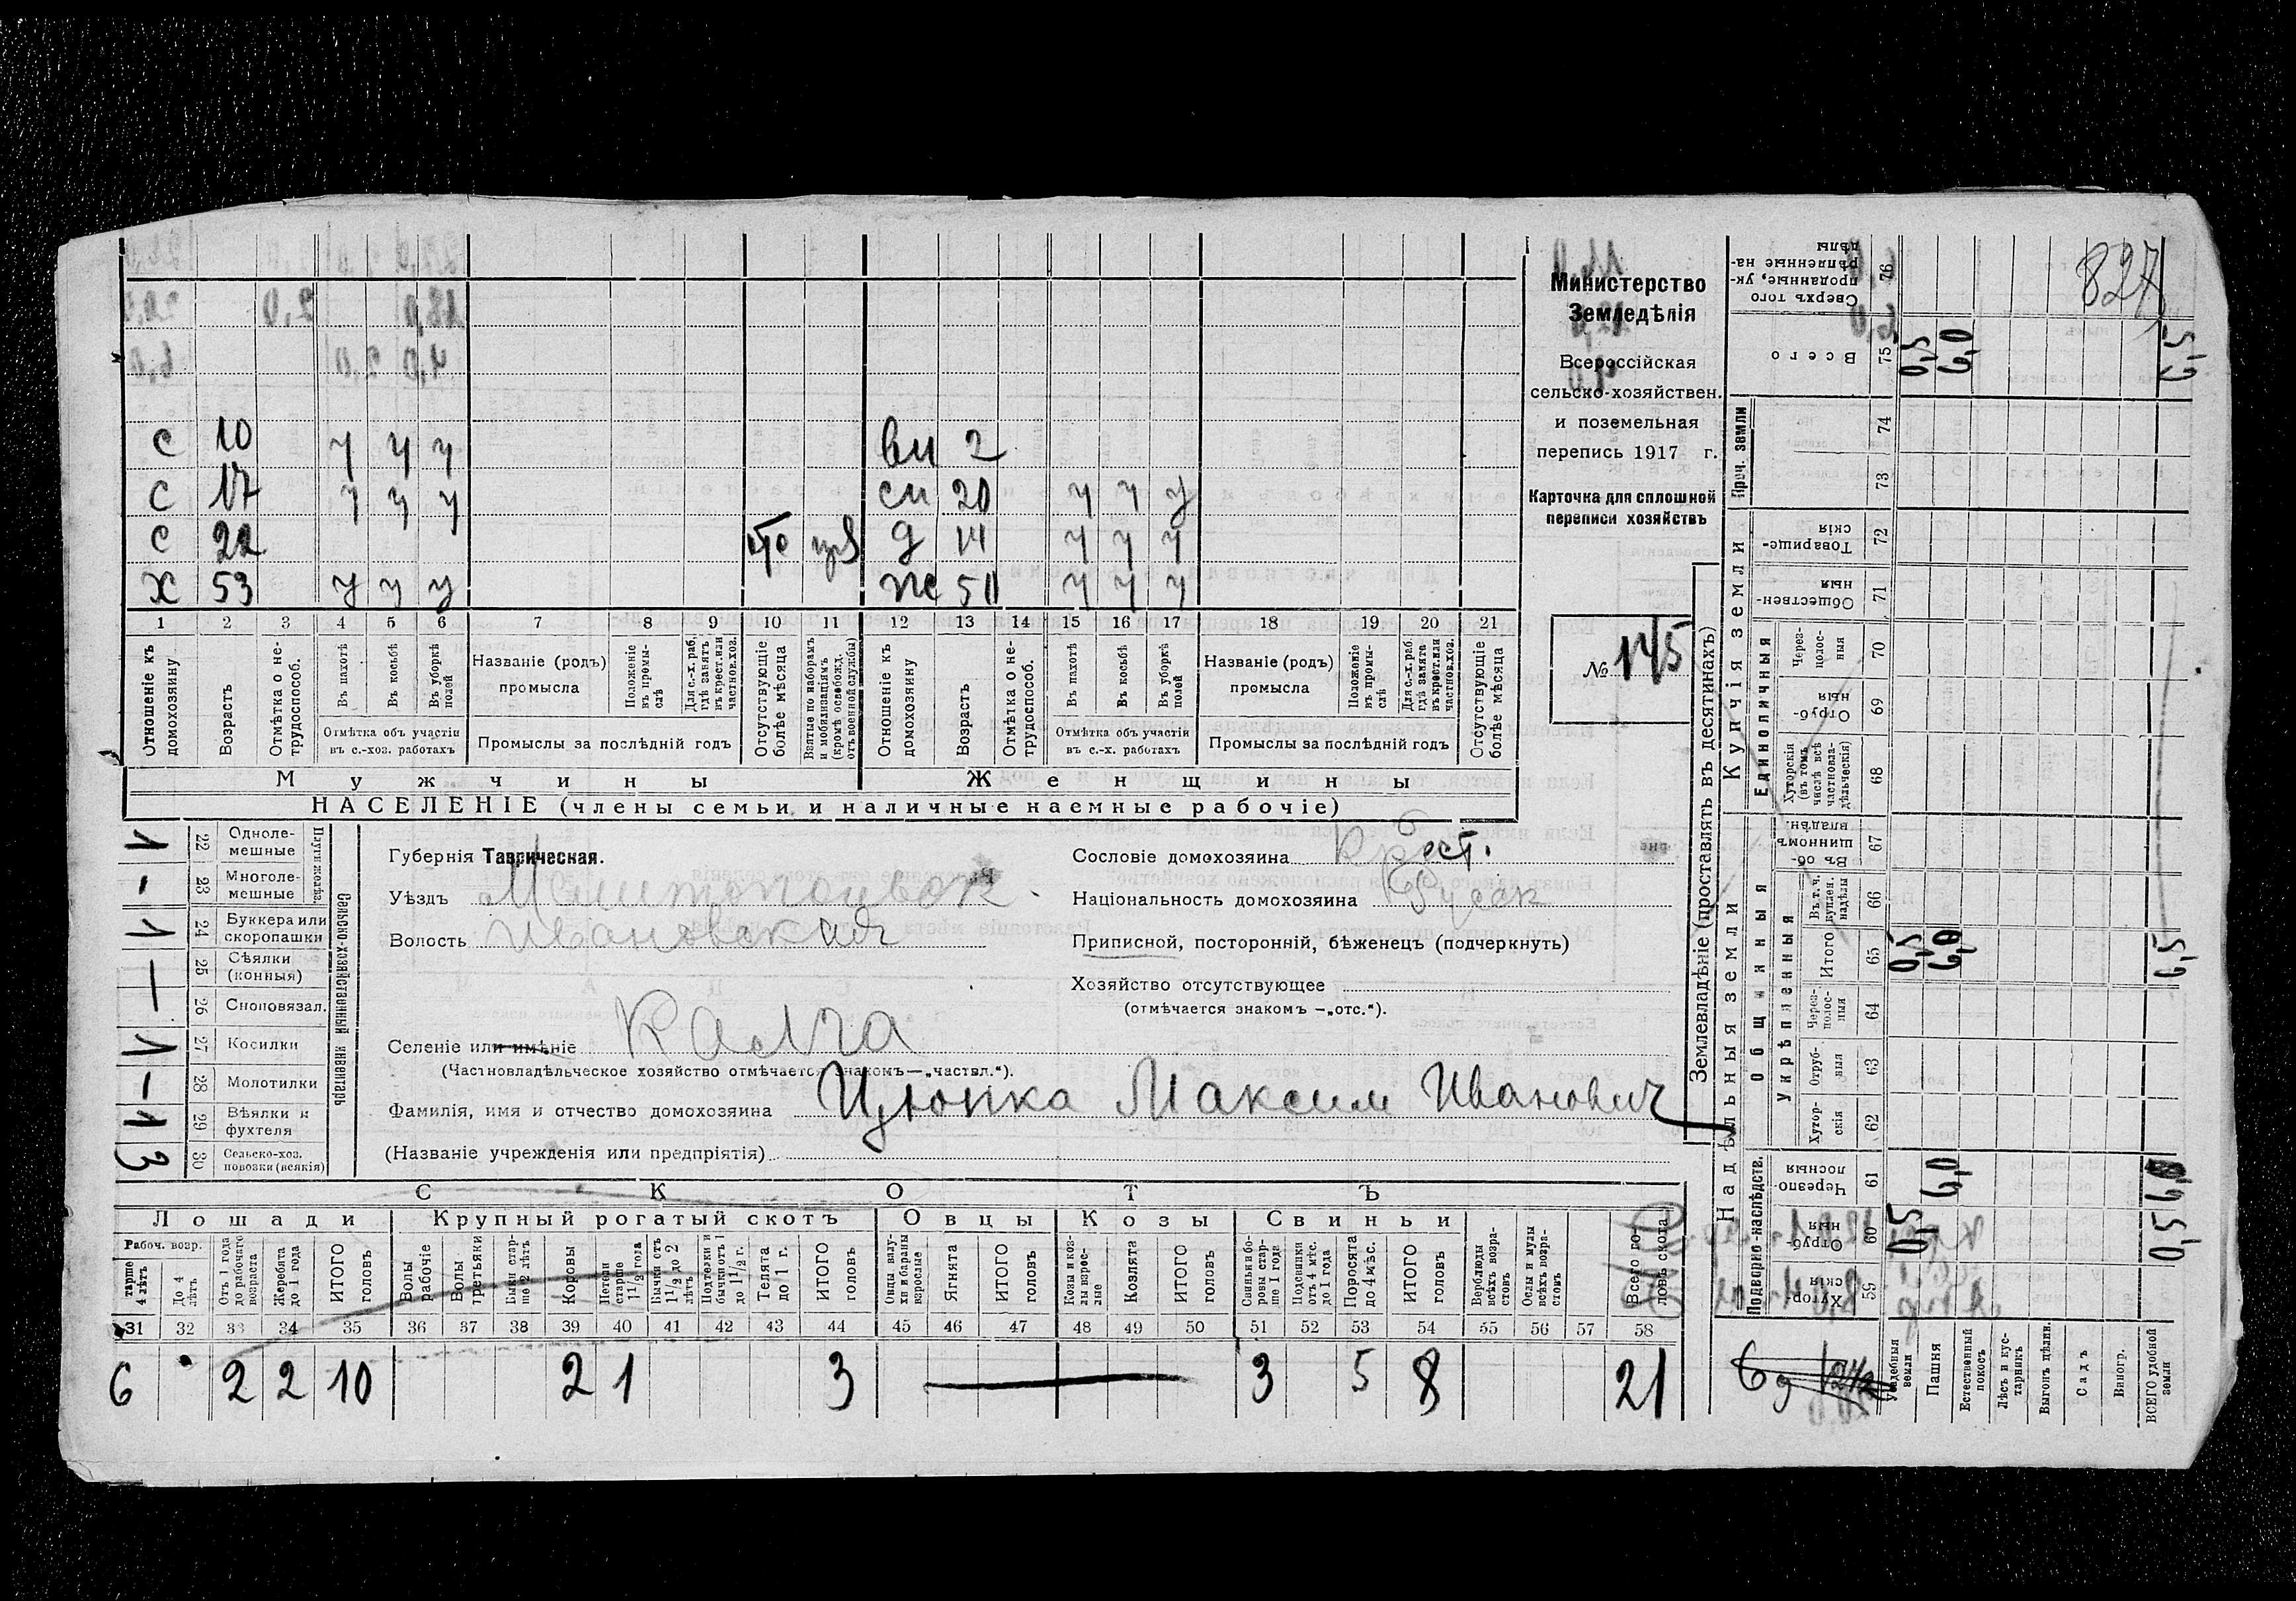 827
Министерство
Земледѣлія
Всероссійская
сельско-хозяйствен.
и поземельная
перепись 1917 г.
Карточка для сплошной
переписи хозяйствъ
№ 145
С 10 у у у вн 2
С 17 у у у сн 20 у у у
С 22 д 14 у у у
Х 53 у у у же 50 у у у
1 2 3 4 5 6 7 8 9 10 11 12 13 14 15 16 17 18 19 20 21
Отношеніе къ домохозяину
Возрастъ
Отмѣтка о не-трудоспособ.
Въ пахотѣ
Въ косьбѣ
Въ уборкѣ полей
Отмѣтка объ участіи въ с.-хоз. работахъ
Названіе (родъ) промысла
Положеніе въ промы-слѣ
Для с.-х. раб, гдѣ занятъ въ крест. или частнов. хоз.
Промыслы за послѣдній годъ
Отсутствующіе болѣе мѣсяца
Взятые по наборамъ и мобилизаціямъ (кромѣ освобожд. отъ военной службы)
Отношеніе къ домохозяину
Возрастъ
Отмѣтка о не-трудоспособ.
Въ пахотѣ
Въ косьбѣ
Въ уборкѣ полей
Отмѣтка объ участіи въ с.-х. работахъ
Названіе (родъ) промысла
Положеніе въ промы-слѣ
Для с.-х. раб. гдѣ занята въ крест. или частнов. хоз.
Промыслы за послѣдній годъ
Отсутствующіе болѣе мѣсяца
Мужчины Женщины
НАСЕЛЕНІЕ (члены семьи и наличные наемные рабочіе)
Сельско-хозяйственный инвентарь
Плуги желѣз.
1 22 Одноле-мешные
- 23 Многоле-мешные
1 24 Буккера или скоропашки
— 25 Сѣялки (конныя)
26 Сноповязал.
1 27 Косилки
- 28 Молотилки
1 29 Вѣялки и фухтеля
3 30 Сельско-хоз. повозки (всякія)
Губернія Таврическая.
Уѣздъ Мелитопольск
Волость Ивановская
Селеніе или имѣніе Калга
(Частновладѣльческое хозяйство отмѣчается знакомъ—„частвл.“).
Фамилія, имя и отчество домохозяина Цюпка Максим Иванович
(Названіе учрежденія или предпріятія)
Сословіе домохозяина Крест.
Національность домохозяина Русск
Приписной, посторонній, бѣженецъ (подчеркнуть)
Хозяйство отсутствующее
(отмѣчается знакомъ —„отс.“).
СКОТЪ
Лошади Крупный рогатый скотъ Овцы Козы Свиньи
Рабоч. возр.
старше 4 лѣтъ
До 4 лѣтъ
Отъ 1 года до рабочаго возраста
Жеребята до 1 года
ИТОГО головъ
Волы рабочіе
Волы третьяки
Быки стар-ше 2 лѣтъ
Коровы
Нетели старше 1½ года
Бычки отъ 1½ до 2 лѣтъ
Подтелки и бычки отъ 1 до 1½ г.
Телята до 1 г.
ИТОГО головъ
Овцы валу-хи и бараны взрослые
Ягнята
ИТОГО головъ
Козы и коз-лы взрос-лые
Козлята
ИТОГО головъ
Свиньи и бо-ровы стар-ше 1 года
Подсвинки отъ 4 мѣс. до 1 года
Поросята до 4 мѣс.
ИТОГО головъ
Верблюды всѣхъ возра-стовъ
Ослы и мулы всѣхъ возра-стовъ
Всего го-ловъ скота
31 32 33 34 35 36 37 38 39 40 41 42 43 44 45 46 47 48 49 50 51 52 53 54 55 56 57 58
6 2 2 10 2 1 3 — 3 5 8 21
Землевладѣніе (проставлять въ десятинахъ)
Надѣльныя земли
Купчія земли
Проч. земли
Подворно-наслѣдств.
Общинныя
Укрѣпленныя
Единоличныя
59 Хутор-скія
60 Отруб-ныя 0,5
61 Черезпо-лосныя 6,0
62 Хутор-скія
63 Отруб-ныя
64 Через-полос-ныя
65 Итого 0,5 6,0 6,5
66 Въ т. ч. куплен. надѣлы
67 Въ об-щинномъ владѣн.
68 Хуторскія (въ томъ числѣ всѣ частновла-дѣльческія)
69 Отруб-ныя
70 Через-полос-ныя
71 Обществен-ныя
72 Товарище-скія
73
74
75 Всего 0,5 6,0 6,5
76 Сверхъ того проданные, ук-рѣпленные на-дѣлы
Усадебныя земли
Пашня
Естественный покосъ
Лѣсъ и кус-тарникъ
Выгонъ цѣлин.
Садъ
Виногр.
ВСЕГО удобной земли